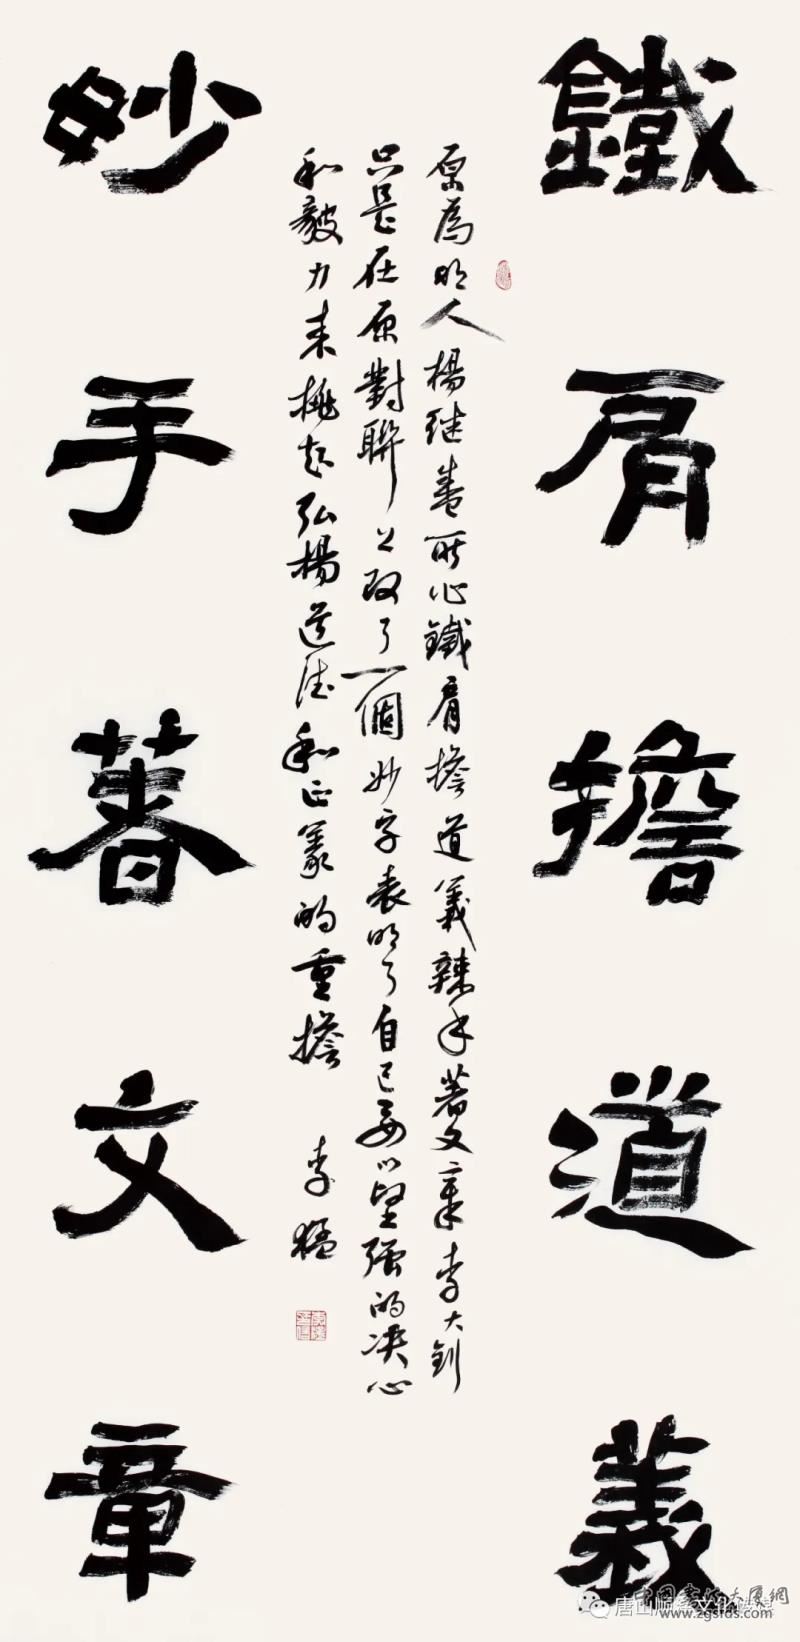 鐵肩擔道義
原為明人楊继盛所鐵肩擔道義辣手著文章李大釗
只是在原對聯上改了一個妙字表明了自己要以堅強的决心
和毅力来挑起弘楊道德和正義的重擔 李猛
妙手著文章
唐山
www.zgsfds.com